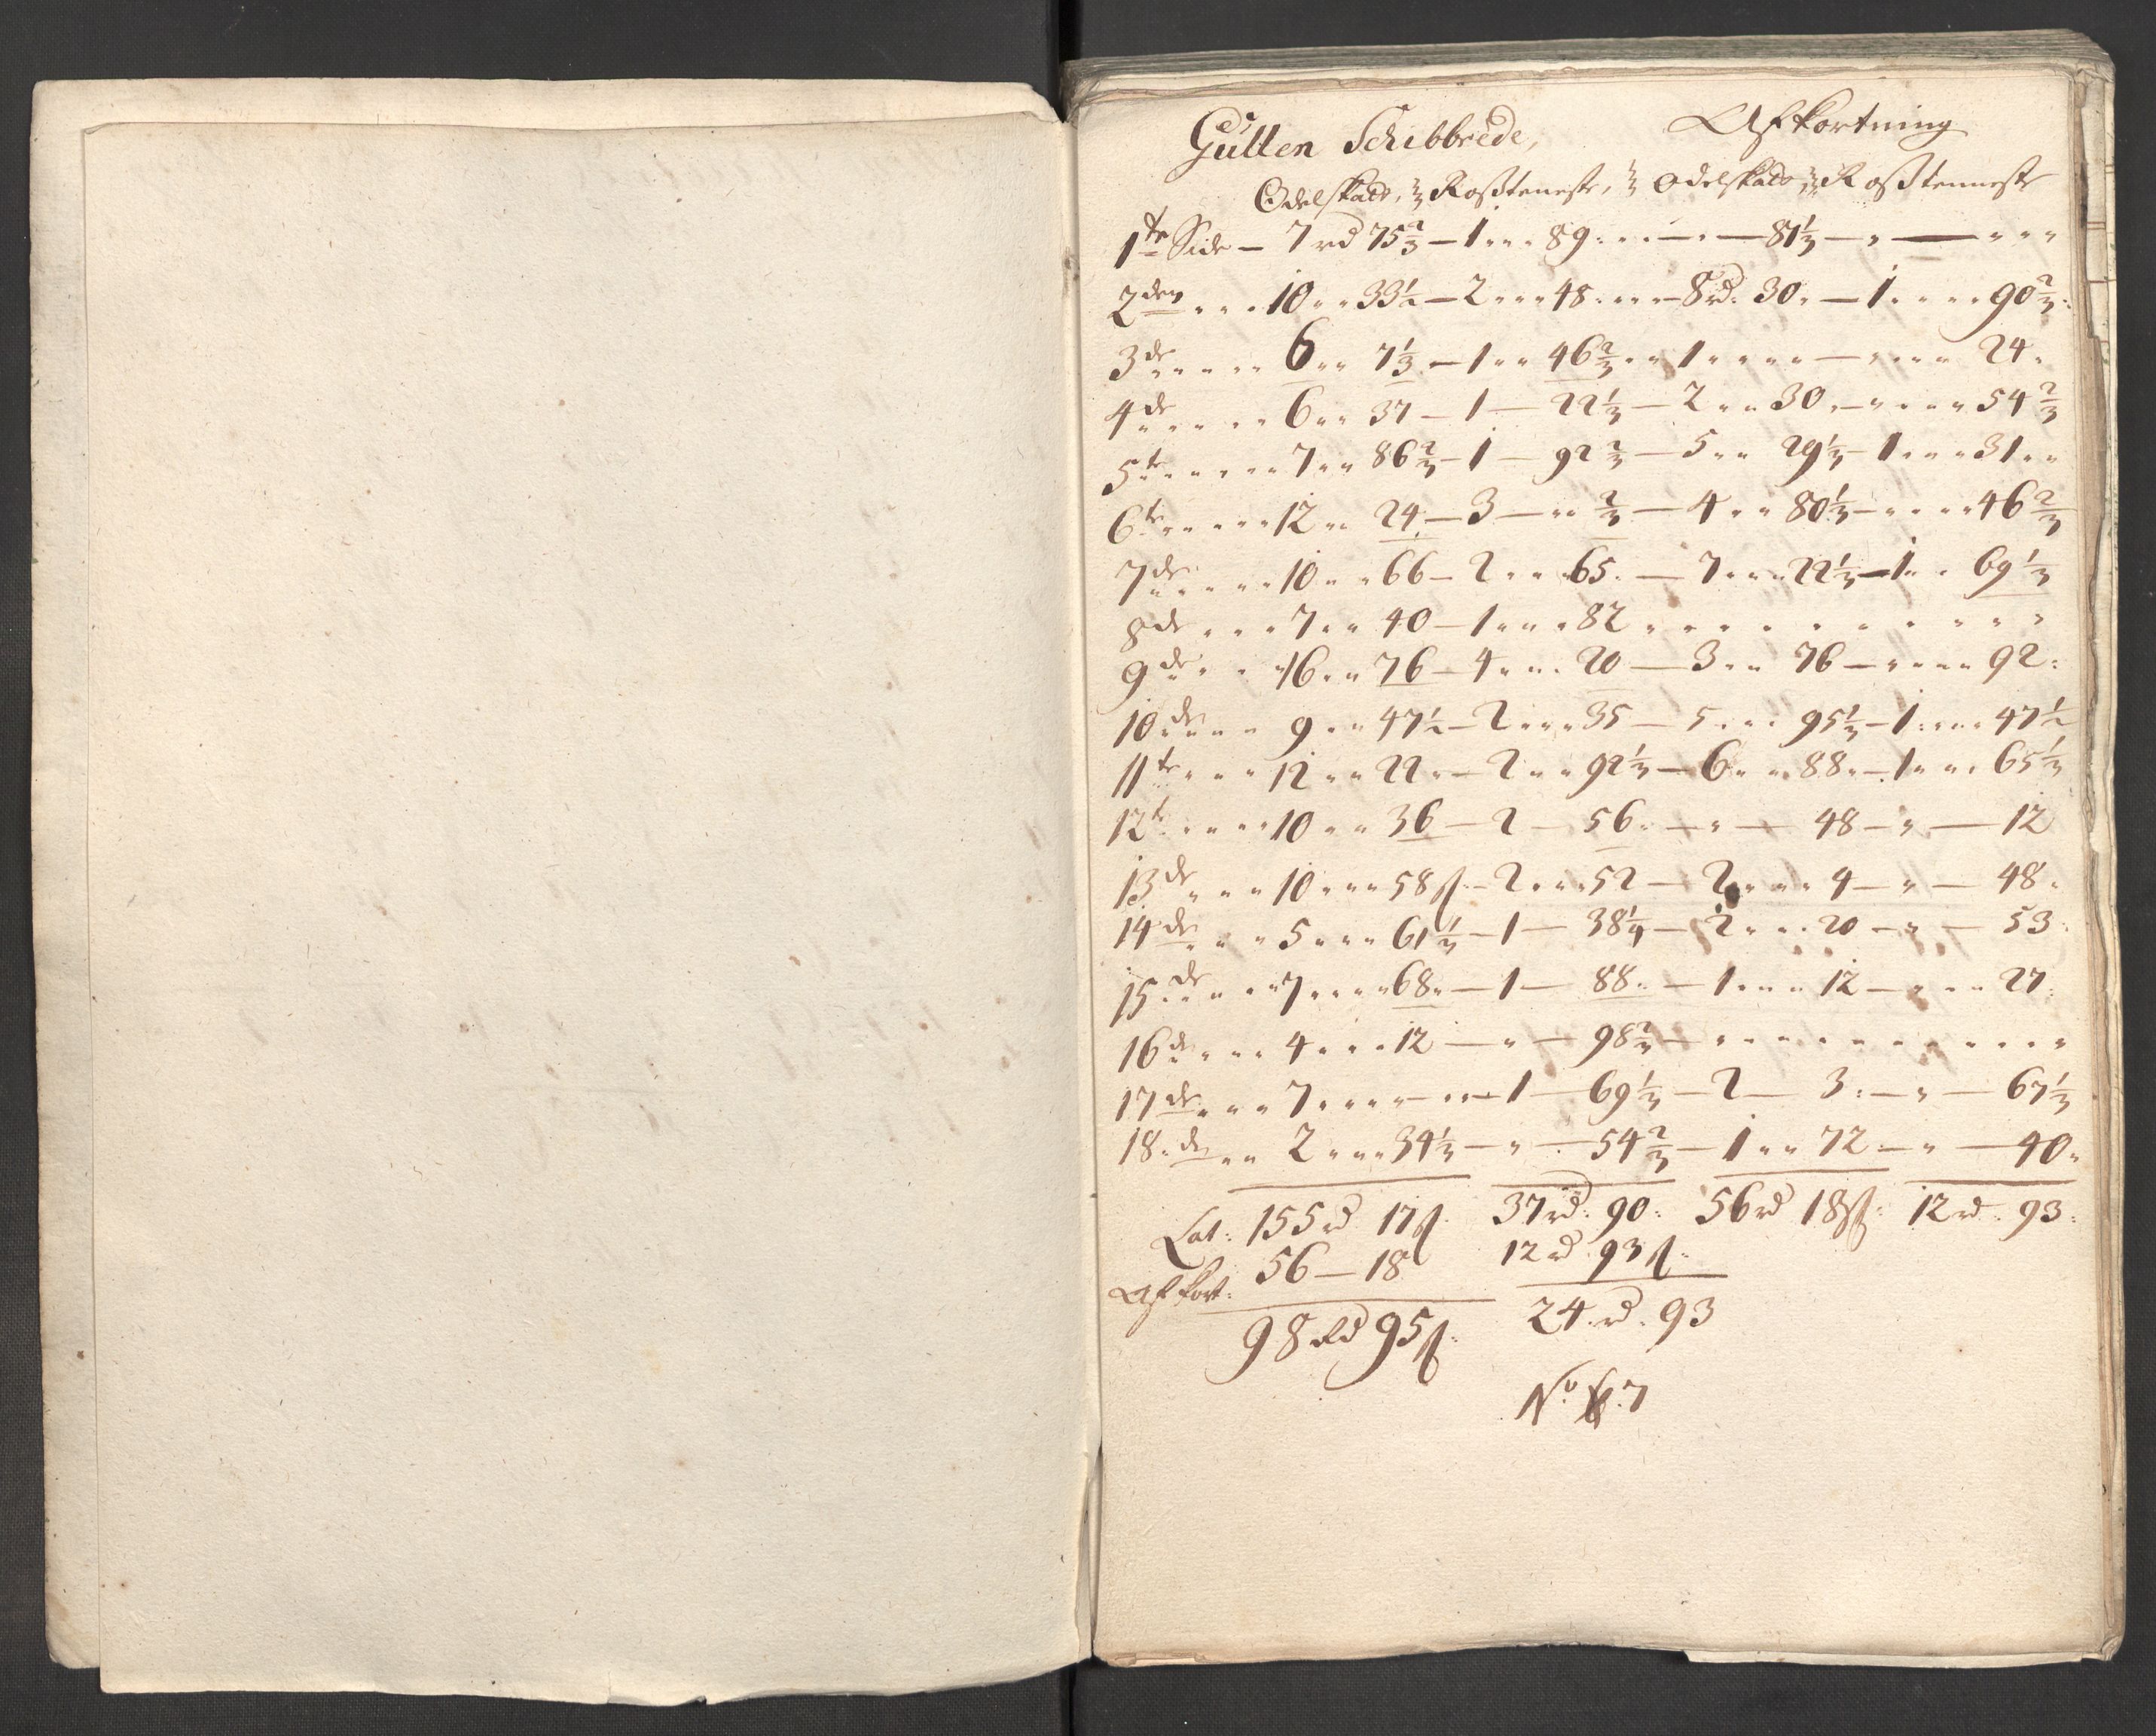 Gullen Schibbrede, Afkortning
Odelskatt, Rosteneste, Odelskatt, Rostenneste
1te Side - 7 rd 75 2/3 - 1 " 89 " - 81 1/3 - " - " " "
2den " " 10 " 33 1/2 - 2 " 48 " - 8 rd. 30 " - 1 " " 90 2/3
3de " " 6 " 7 1/3 - 1 " 46 2/3 " 1 " " - " " 24 "
4de " " 6 " 37 - 1 - 22 1/3 - 2 " 30 " - " " 54 2/3
5te " " 7 " 86 2/3 - 1 - 92 2/3 - 5 " 29 1/3 - 1 " " 31 "
6te " " 12 " 24 - 3 - " 2/3 - 4 " 80 1/3 - " " 46 2/3
7de " " 10 " 66 - 2 " 65 - 7 " 22 1/3 - 1 " 69 1/3
8de " " 7 " 40 - 1 " 82 " " " " " "
9de " " 16 " 76 - 4 " 20 - 3 " 76 - " " 92 :
10de " " 9 " 47 1/2 - 2 " 35 - 5 " 95 1/3 - 1 " 47 1/2
11te " " 12 " 22 " - 2 " 92 1/3 - 6 " 88 " - 1 " 65 1/3
12te " " 10 " 36 - 2 - 56 " - " - 48 - " - 12
13de " " 10 " 58 ß - 2 " 52 - 2 " 4 - " - 48 "
14de " " 5 " 61 1/3 - 1 - 38 1/4 - 2 " 20 - " - 53
15de " " 7 " 68 " - 1 - 88 " - 1 " 12 - " " 27
16de " " 4 " 12 - " - 98 2/3 - " " " " "
17de " " 7 " " - " - 1 - 69 1/3 - 2 - 3 : - " - 67 1/3
18de " " 2 " 34 1/3 - " - 54 2/3 - 1 " 72 - " - 40 "
Lat: 155 rd 17 ß 37 rd: 90: 56 rd 18 ß: 12 rd 93:
Afkort: 56 - 18 12 rd 93 ß:
98 Rd 95 ß: 24 rd. 93
No 7